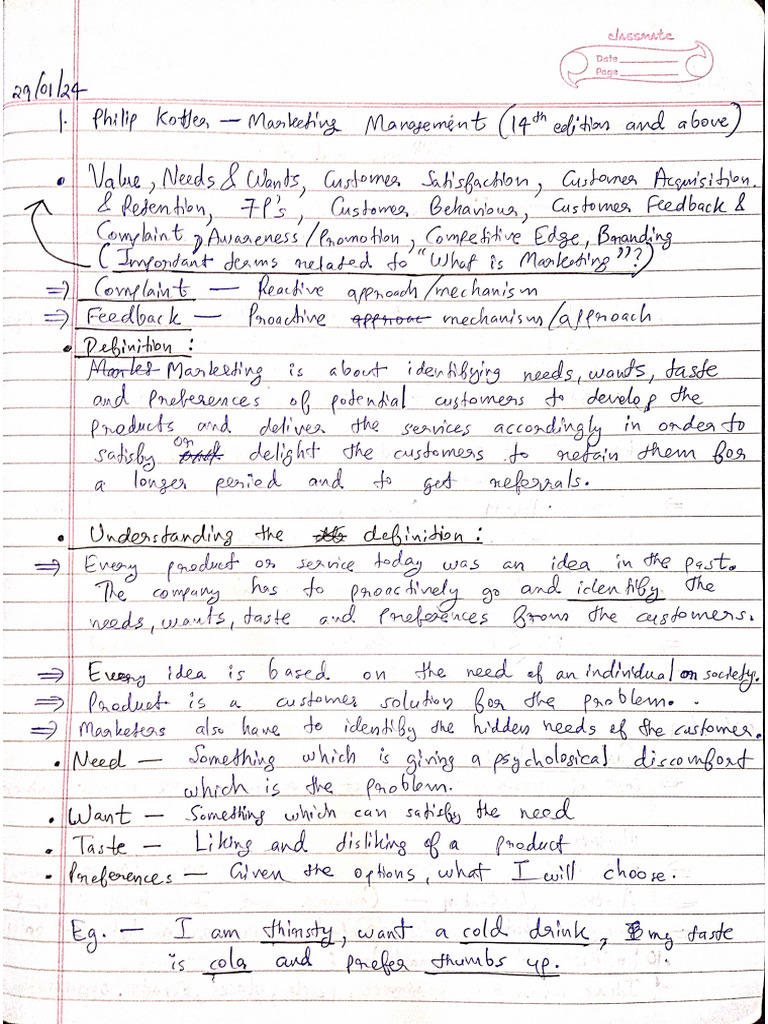 classmate
Date
Page
29/01/24
1. Philip Kotler — Marketing Management (14th edition and above)
• Value, Needs & Wants, Customer Satisfaction, Customer Acquisition
& Retention, 7P's, Customer Behaviour, Customer Feedback &
Complaint, Awareness/Promotion, Competitive Edge, Branding
(Important terms related to "What is Marketing"?)
⇒ Complaint — Reactive approach/mechanism
⇒ Feedback — Proactive approac mechanism/approach
• Definition :
Market Marketing is about identifying needs, wants, taste
and preferences of potential customers to develop the
products and deliver the services accordingly in order to
satisfy or delight the customers to retain them for
a longer period and to get referrals.
• Understanding the definition :
⇒ Every product or service today was an idea in the past.
The company has to proactively go and identify the
needs, wants, taste and preferences from the customers.
⇒ Every idea is based on the need of an individual or society.
⇒ Product is a customer solution for the problem.
⇒ Marketers also have to identify the hidden needs of the customer.
• Need — Something which is giving a psychological discomfort
which is the problem.
• Want — Something which can satisfy the need
• Taste — Liking and disliking of a product
• Preferences — Given the options, what I will choose.
Eg. — I am thirsty, want a cold drink, my taste
is cola and prefer thumbs up.